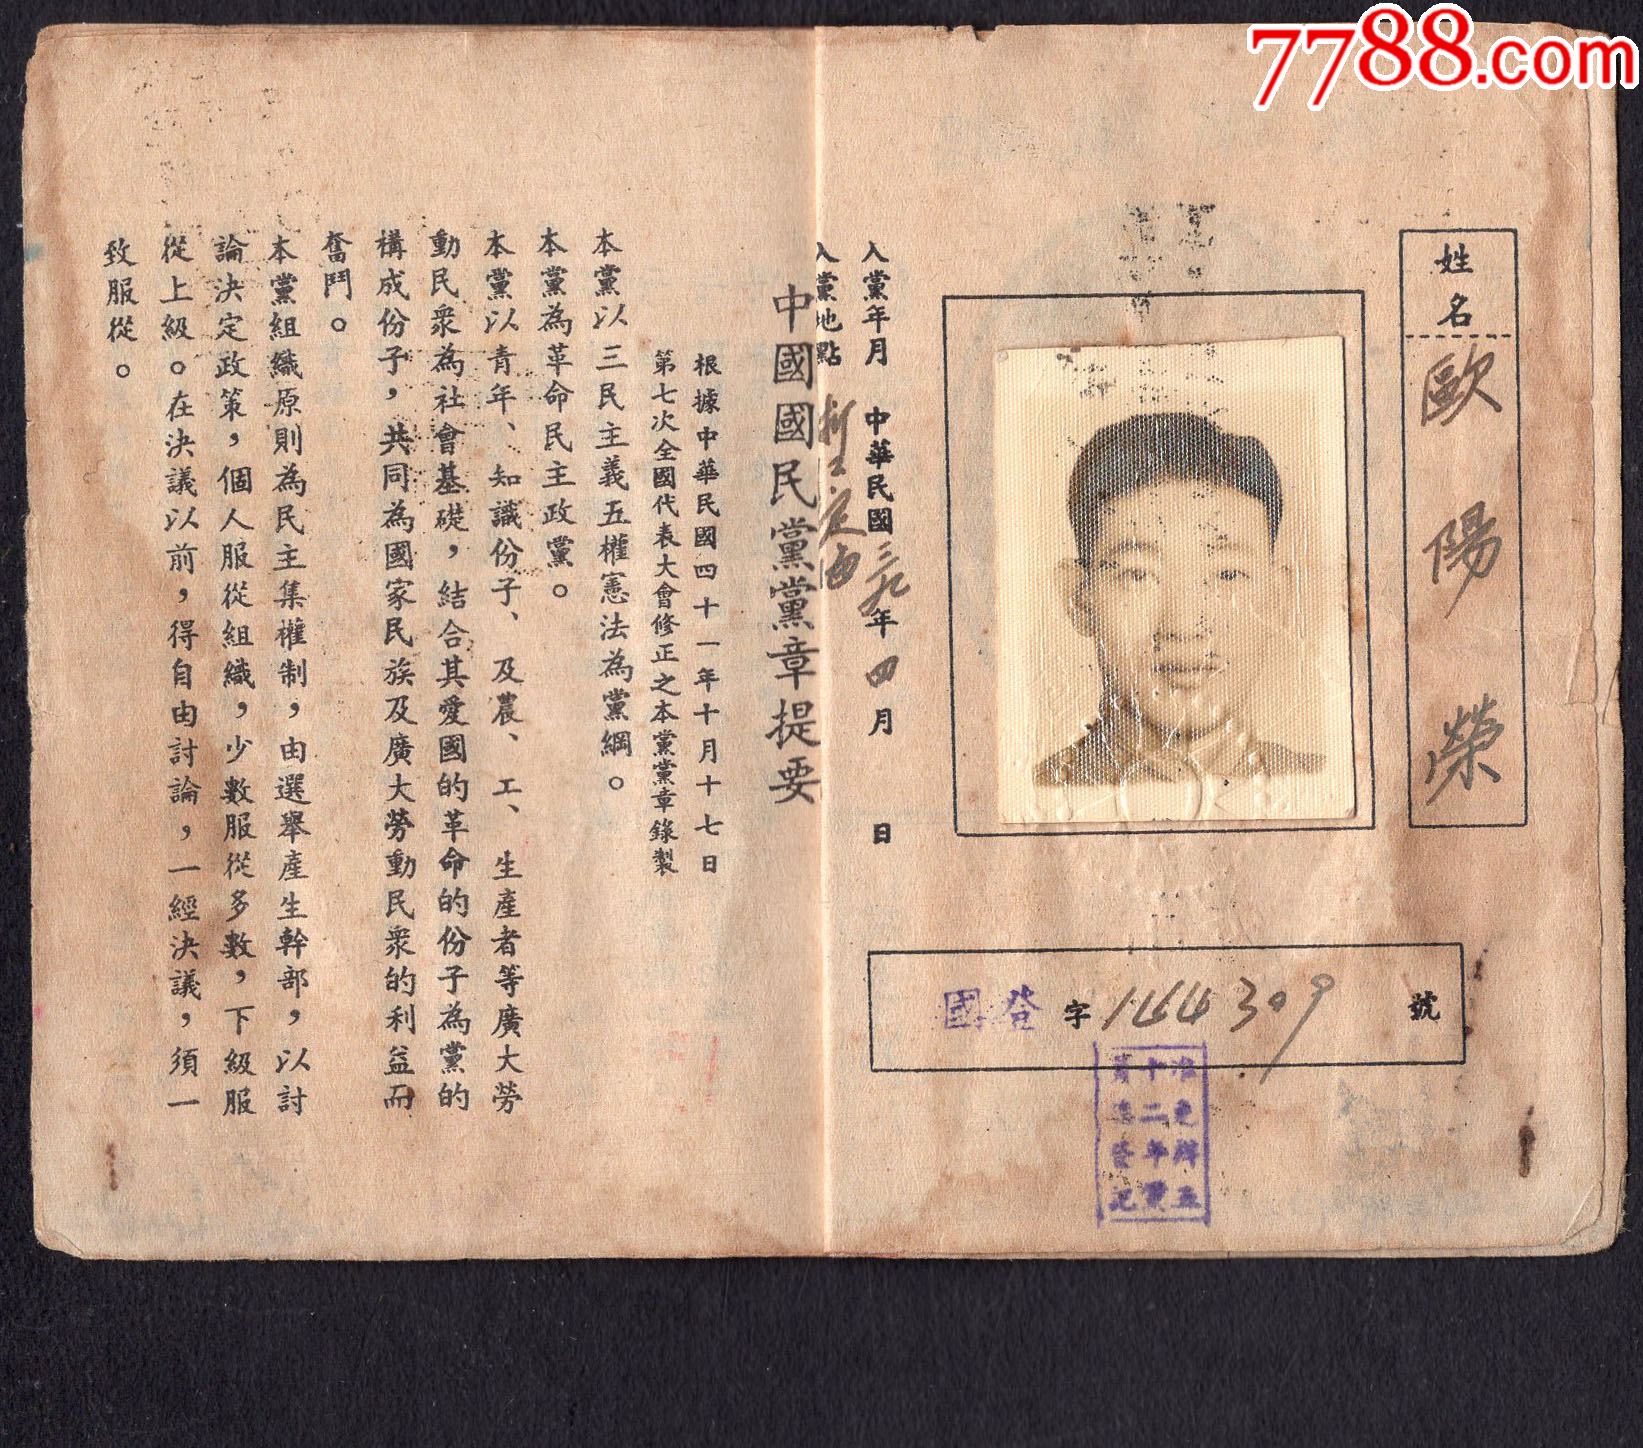 7788.com
姓名 歐陽榮
入黨年月 中華民國三九年四月 日
入黨地點 浙江定海
國登字144309號
十二年黨
登記
中國國民黨黨章提要
根據中華民國四十一年十月十七日
第七次全國代表大會修正之本黨黨章錄製
本黨以三民主義五權憲法為黨綱。
本黨為革命民主政黨。
本黨以青年、知識份子、及農、工、生產者等廣大勞
動民衆為社會基礎，結合其愛國的革命的份子為黨的
構成份子，共同為國家民族及廣大勞動民衆的利益而
奮鬥。
本黨組織原則為民主集權制，由選舉產生幹部，以討
論決定政策，個人服從組織，少數服從多數，下級服
從上級。在決議以前，得自由討論，一經決議，須一
致服從。